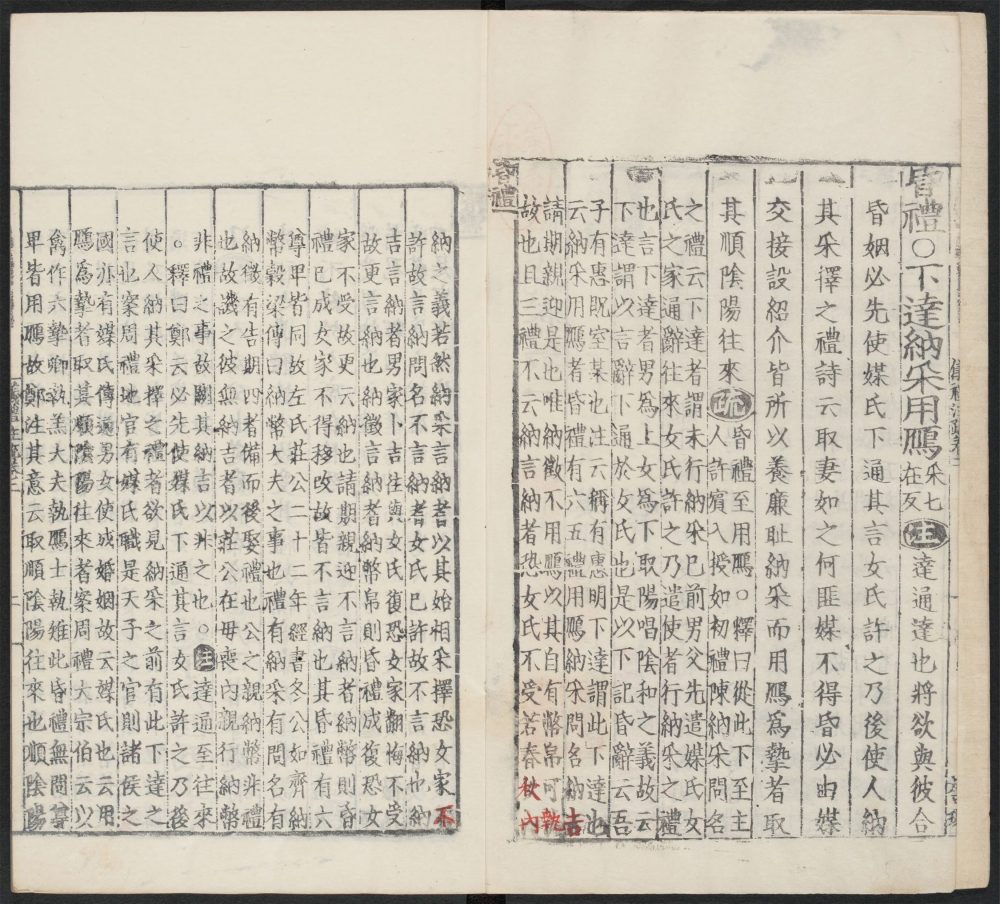 昏禮○下達納采用鴈采七在反注達通達也將欲與彼合
昏姻必先使媒氏下通其言女氏許之乃後使人納
其采擇之禮詩云取妻如之何匪媒不得昏必由媒
交接設紹介皆所以養廉恥納采而用鴈為摯者取
其順陰陽往來疏昏禮至用鴈○釋曰從此下至主人許賓入授如初禮陳納采問名
之禮云下達者謂未行納采已前男父先遣媒氏女
氏之家通辭往來女氏許之乃遣使者行納采之禮
也言下達者男為上女為下取陽唱陰和之義故云
下達謂以言辭下通於女氏也是以下記昏辭云吾
子有惠貺室某也注云稱有惠明下達謂此下達也
云納采用鴈者昏禮有六五禮用鴈納采問名納吉
請期親迎是也唯納徵不用鴈以其自有幣帛可執
故也且三禮不云納言納者恐女氏不受若春秋內
昏禮
納之義若然納采言納者以其始相采擇恐女家不
許故言納問名不言納者女氏已許故不言納也納
吉言納者男家卜吉往與女氏復恐女家翻悔不受
故更言納也納徵言納者納幣帛則昏禮成復恐女
家不受故更云納也請期親迎不言納者納幣則昏
禮已成女家不得移改故皆不言納也其昏禮有六
尊卑皆同故左氏莊公二十二年經書冬公如齊納
幣穀梁傳曰納幣大夫之事也禮有納采有問名有
納徵有告期四者備而後娶禮也公之親納幣非禮
也故譏之彼無納吉者以莊公在母喪內親行納幣
非禮之事故闕其納吉以非之也○注達通至往來
○釋曰鄭云必先使媒氏下通其言女氏許之乃後
使人納其采擇之禮者欲見納采之前有此下達之
言也案周禮地官有媒氏職是天子之官則諸侯之
國亦有媒氏傳通男女使成婚姻故云媒氏也云用
鴈為摯者取其順陰陽往來者案周禮大宗伯云以
禽作六摯卿執羔大夫執鴈士執雉此昏禮無問尊
卑皆用鴈故鄭注其意云取順陰陽往來也順陰陽